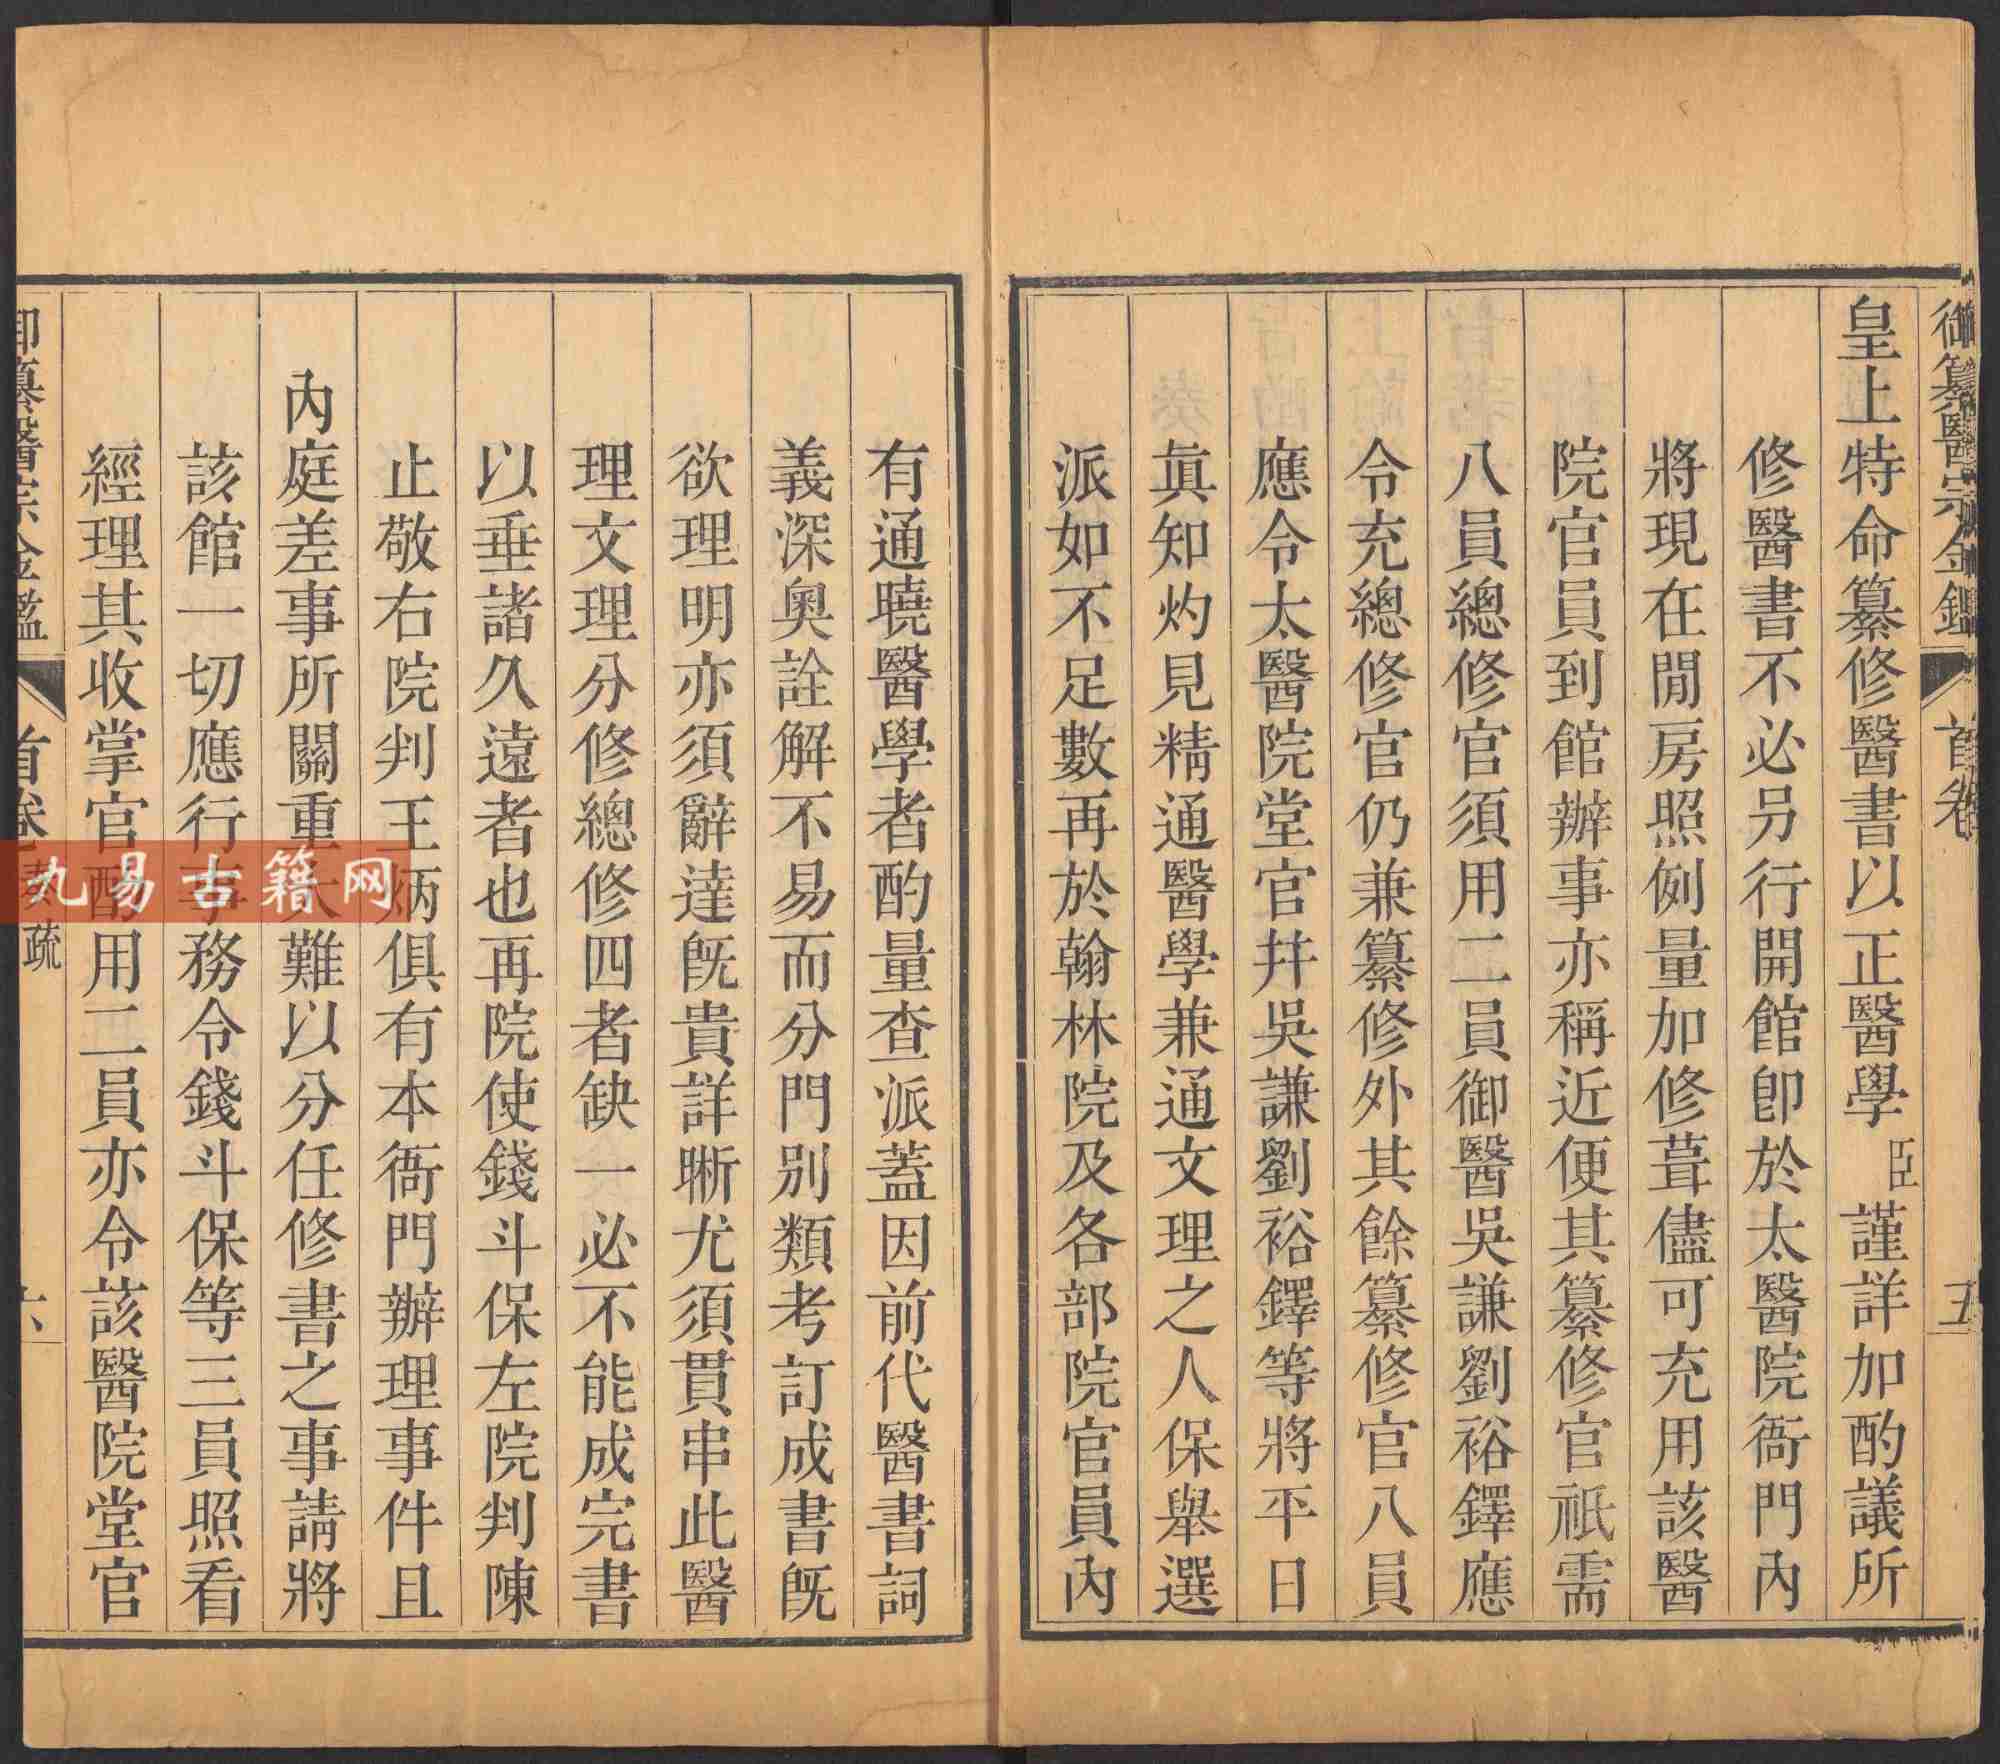 御纂醫宗金鑑 首卷 五
皇上特命纂修醫書以正醫學臣謹詳加酌議所
修醫書不必另行開館卽於太醫院衙門內
將現在閒房照例量加修葺儘可充用該醫
院官員到館辦事亦稱近便其纂修官祇需
八員總修官須用二員御醫吳謙劉裕鐸應
令充總修官仍兼纂修外其餘纂修官八員
應令太醫院堂官幷吳謙劉裕鐸等將平日
眞知灼見精通醫學兼通文理之人保舉選
派如不足數再於翰林院及各部院官員內
有通曉醫學者酌量查派蓋因前代醫書詞
義深奧詮解不易而分門別類考訂成書旣
欲理明亦須辭達旣貴詳晰尤須貫串此醫
理文理分修總修四者缺一必不能成完書
以垂諸久遠者也再院使錢斗保左院判陳
止敬右院判王炳俱有本衙門辦理事件且
內庭差事所關重大難以分任修書之事請將
該館一切應行事務令錢斗保等三員照看
經理其收掌官酌用二員亦令該醫院堂官
御纂醫宗金鑑 首卷 奏疏 六
九易古籍网